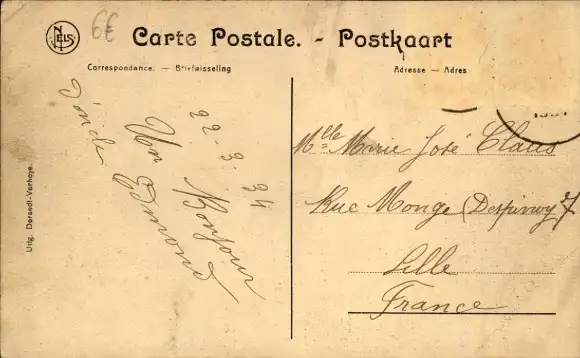 NELS
6€
Carte Postale. - Postkaart
Correspondance. — Briefwisseling
Adresse — Adres
22-3.34
Un Bonjour
d'oncle Edmond
Mlle Marie José Claus
Rue Monge
Lille
France
Uitg. Deraedt-Verhoye.